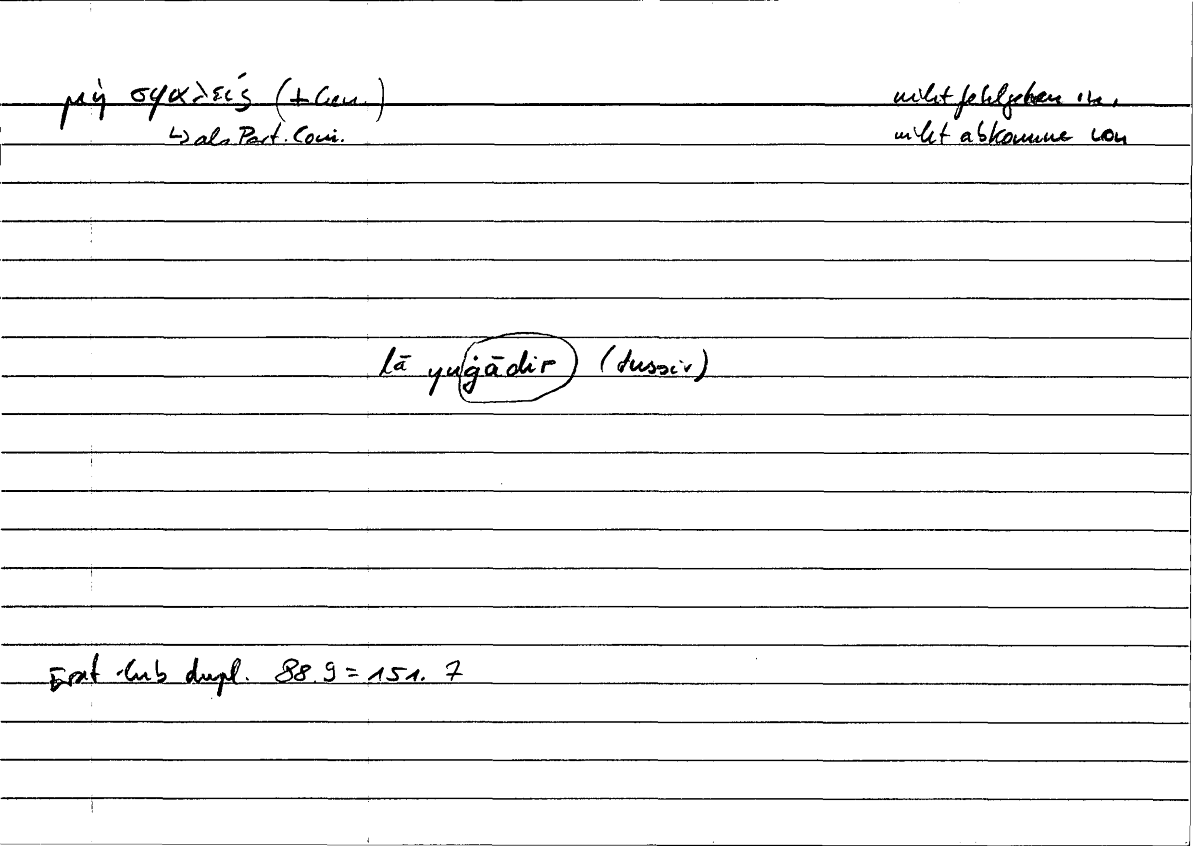 μὴ σφαλείς (+ Gen.)
↳ als Part. Coni.
nicht fehlgehen in,
nicht abkommen von
lā yuġādir (Jussiv)
Erat cub dupl. 88.9 = 151. 7